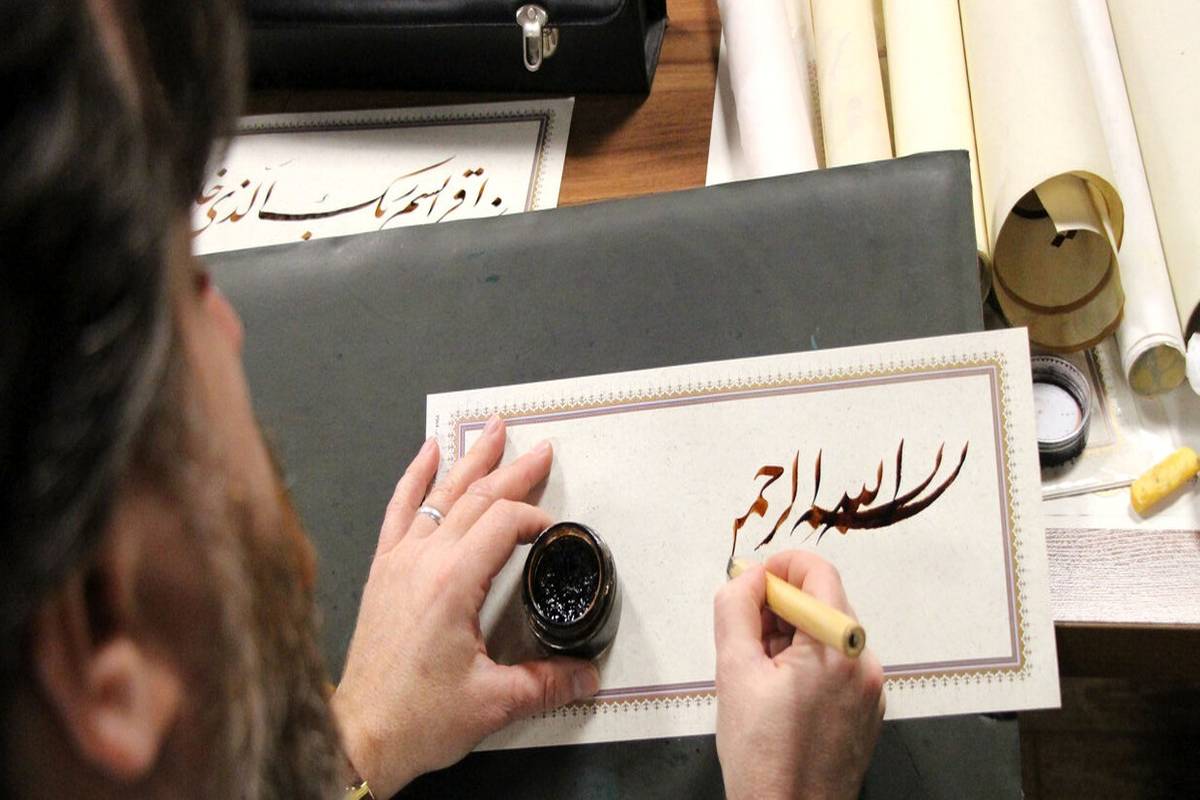 اقرا باسم ربک الذی
بسم الله الرحم